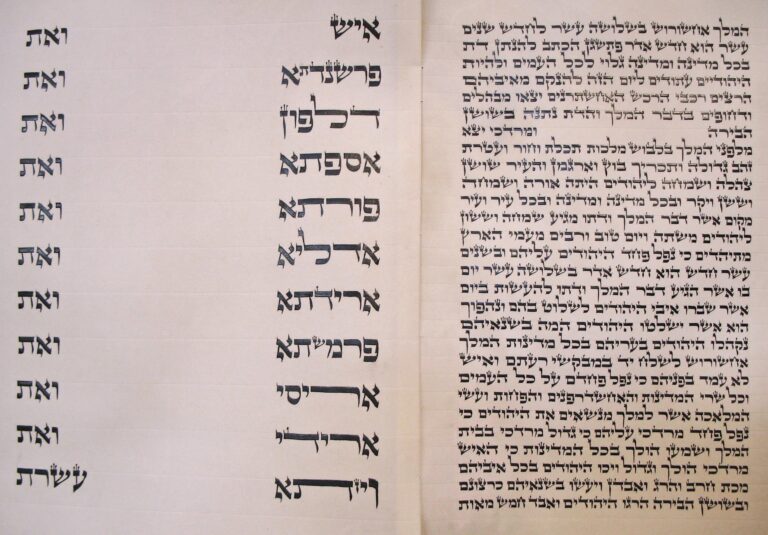 המלך אחשורוש בשלושה עשר לחדש שנים
עשר הוא חדש אדר פתשגן הכתב להנתן דת
בכל מדינה ומדינה גלוי לכל העמים ולהיות
היהודיים עתודים ליום הזה להנקם מאיביהם
הרצים רכבי הרכש האחשתרנים יצאו מבהלים
ודחופים בדבר המלך והדת נתנה בשושן
הבירה ומרדכי יצא
מלפני המלך בלבוש מלכות תכלת וחור ועטרת
זהב גדולה ותכריך בוץ וארגמן והעיר שושן
צהלה ושמחה ליהודים היתה אורה ושמחה
וששן ויקר ובכל מדינה ומדינה ובכל עיר ועיר
מקום אשר דבר המלך ודתו מגיע שמחה וששון
ליהודים משתה ויום טוב ורבים מעמי הארץ
מתיהדים כי נפל פחד היהודים עליהם ובשנים
עשר חדש הוא חדש אדר בשלושה עשר יום
בו אשר הגיע דבר המלך ודתו להעשות ביום
אשר שברו איבי היהודים לשלוט בהם ונהפוך
הוא אשר ישלטו היהודים המה בשנאיהם
נקהלו היהודים בעריהם בכל מדינות המלך
אחשורוש לשלח יד במבקשי רעתם ואיש
לא עמד בפניהם כי נפל פחדם על כל העמים
וכל שרי המדינות והאחשדרפנים והפחות ועשי
המלאכה אשר למלך מנשאים את היהודים כי
נפל פחד מרדכי עליהם כי גדול מרדכי בבית
המלך ושמעו הולך בכל המדינות כי האיש
מרדכי הולך וגדול ויכו היהודים בכל איביהם
מכת חרב והרג ואבדן ויעשו בשנאיהם כרצונם
ובשושן הבירה הרגו היהודים ואבד חמש מאות
איש ואת
פרשנדתא ואת
דלפון ואת
אספתא ואת
פורתא ואת
אדליא ואת
ארידתא ואת
פרמשתא ואת
אריסי ואת
ארידי ואת
ויזתא עשרת